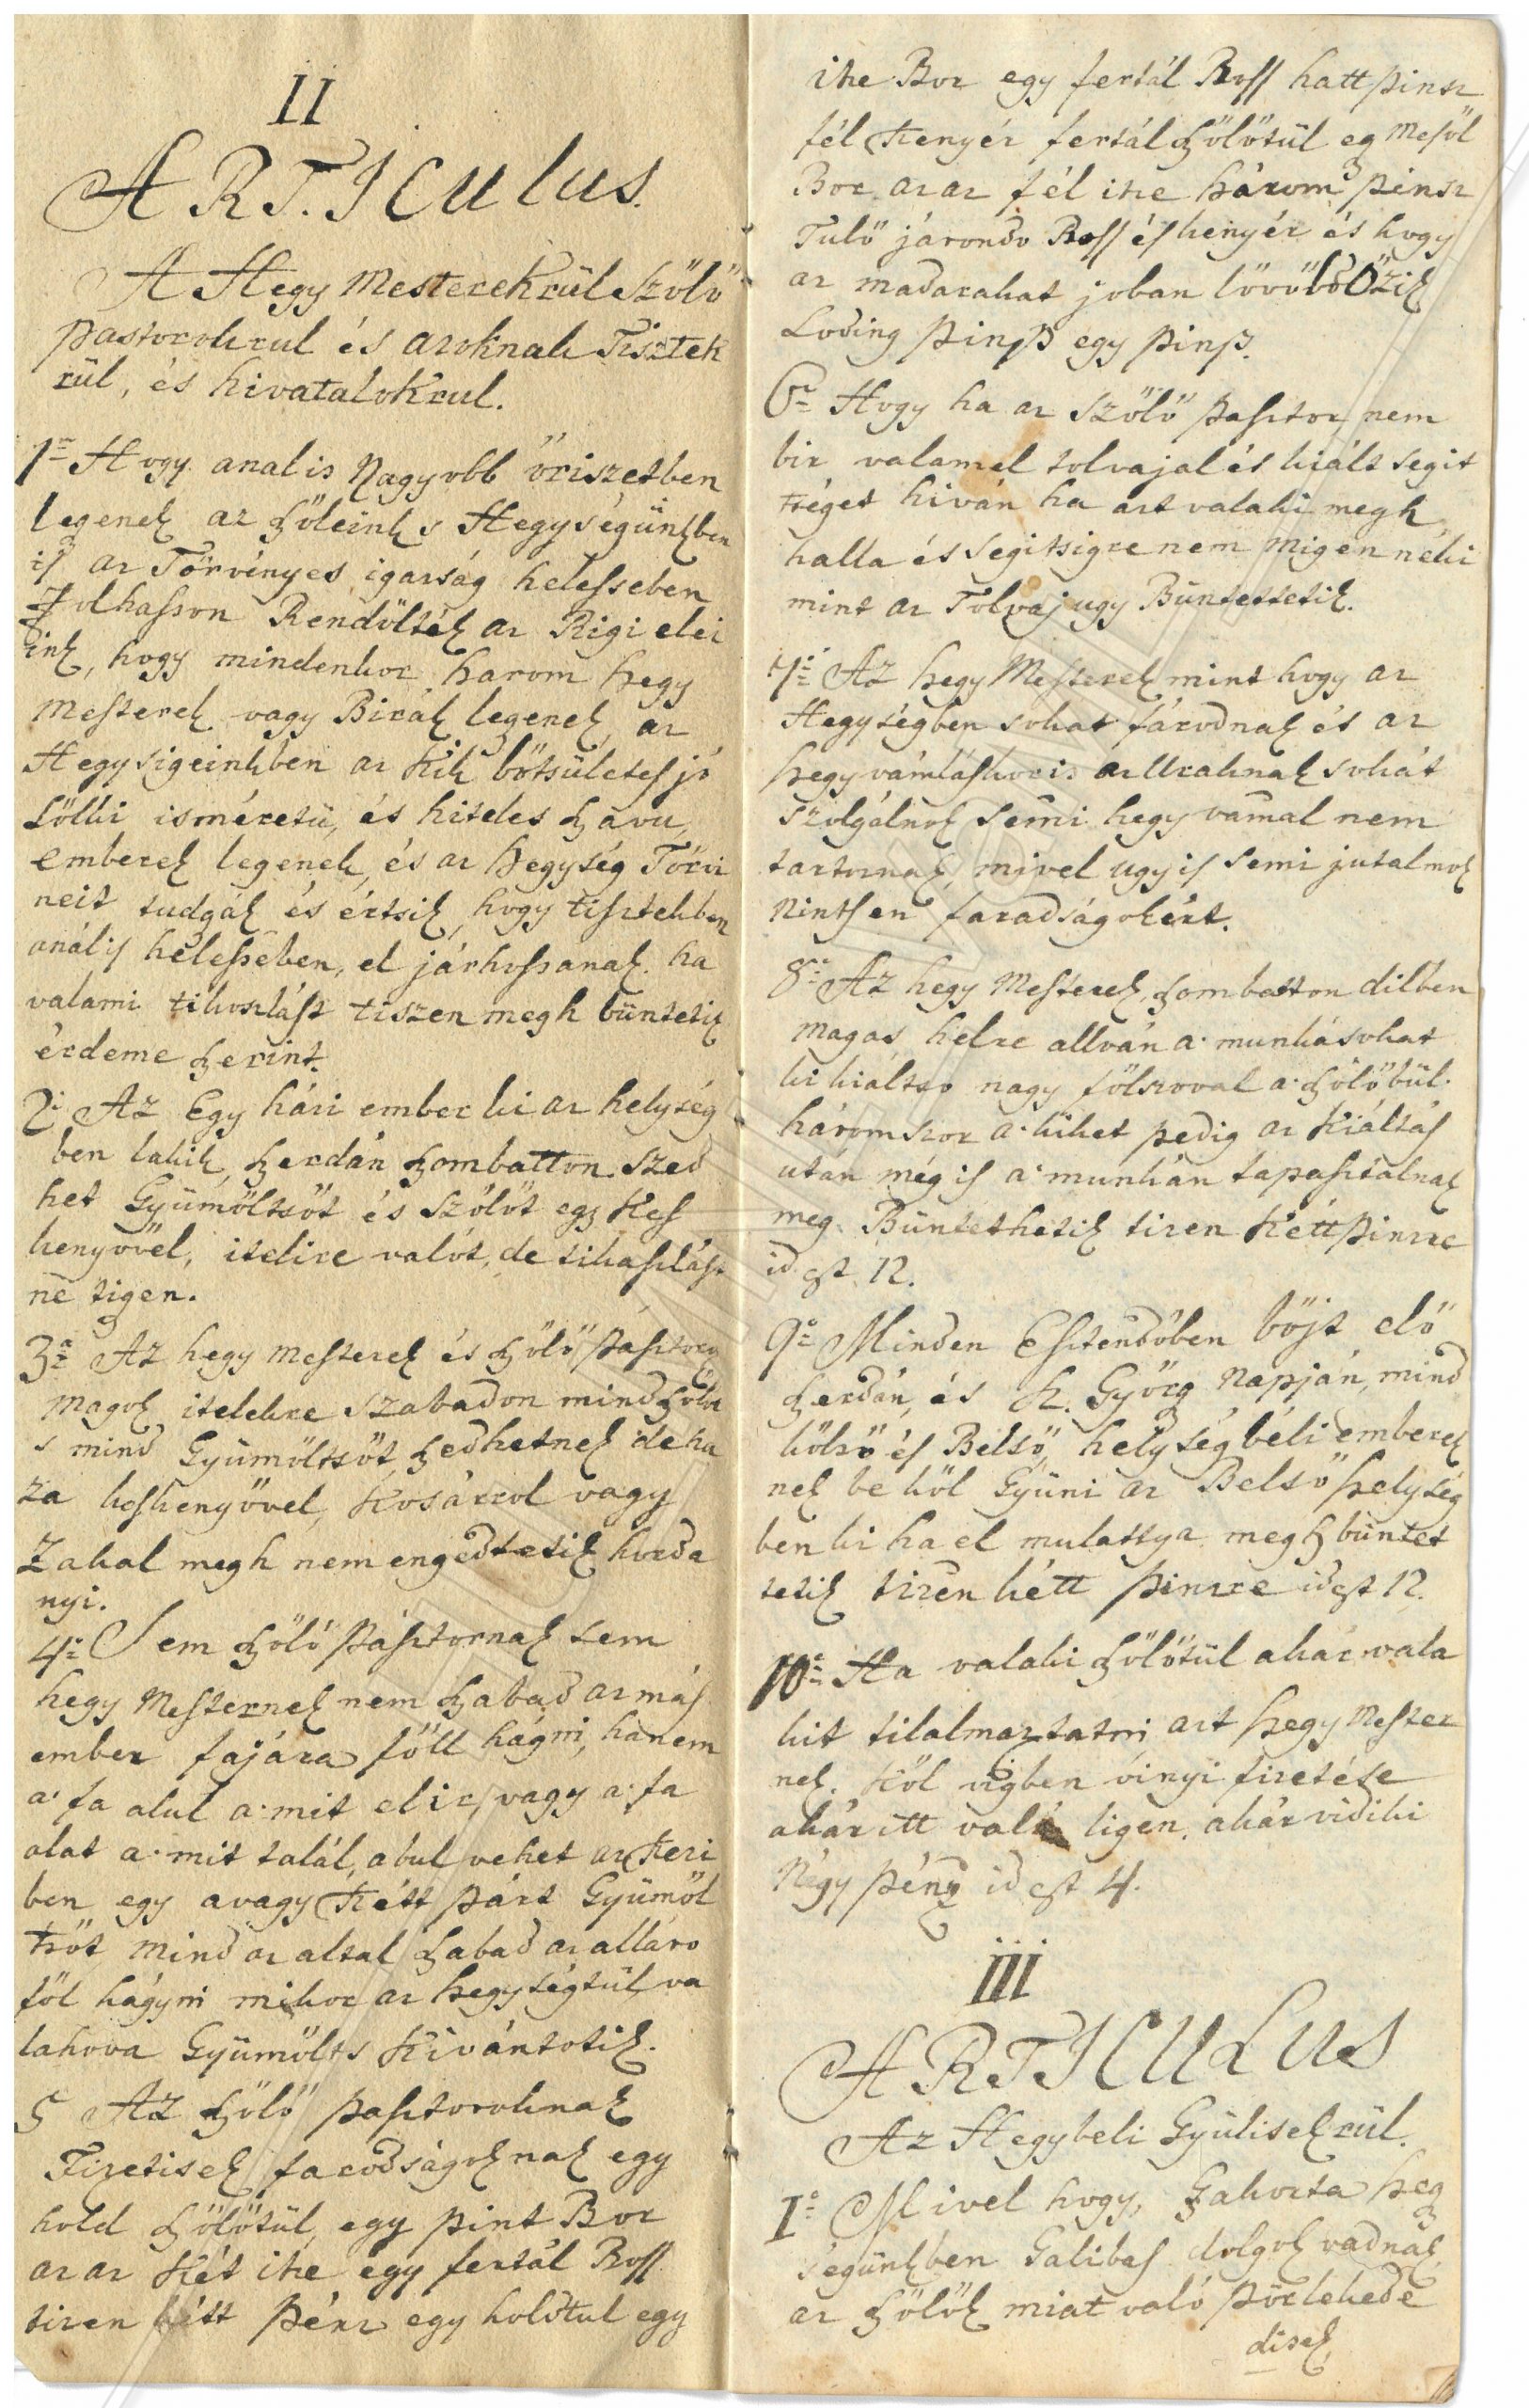 II
ARTICulus.
A Hegy MesterekRül Szölö
pastorokrul és azoknak Tisztek
rül, és hivatalokrul.
1º Hogy analis Nagyobb öriszetben
legenek az Szöleink s Hegységünkben
is az Törvényes igasság helesseben
folhasson Rendölték az Rigi elei
ink, hogy mindenkor harom hegy
Mesterek vagy Birák legenek, az
Hegysigeinkben az Kik bötsületes jó
Lölki isméretü, és hiteles Szavu,
emberek legenek, és az hegység Törvi
neit tudgák és értsik, hogy tisztekben
anális helesseben, el járhossanak. ha
valami tikozlást tiszen megh büntetik
érdeme szerint.
2: Az Egy házi ember ki az helység
ben lakik, Szerdán Szombatton szed
het Gyümöltsöt és Szölöt egy Kes
kenyövel, itelire valót, de tikaszlást
ne tigen.
3ª Az hegy mesterek és Szölö pásztorok
magok itelekre szabadon mind Szölöt
s mind Gyümöltsöt, Szedhetnek de ha
za keskenyövel, Kosárrol vagy
Zakal megh nem engedtetik horda
nyi.
4º Sem Szölö pásztornak sem
hegy Mesternek nem Szabad az más
ember fajára föll hágni, hanem
a fa alul a mit elir, vagy a fa
alat a mit talál, abul vehet az Kezi
ben egy avagy Kétt párt Gyümöl
tsöt, mind az altal Szabad az alláro
föl hágyni mikor az hegységtül va
lahova Gyümölts Kivántotik.
5 Az Szölö pasztoroknak
Fizetisek faradságoknak egy
hold Szölötül, egy pint Bor
az az Két itze egy fertál Ross
tizen kétt pénz egy holdtul egy
itze Bor egy fertál Ross hatt pinsz
fél Kenyér fertál Szölötül eg Mesöl
Bor az az fél itze három pinsz
Tulö járondo Ross és kenyér és hogy
az madarakat joban lövöldÖzik
Loding pinsz egy pinsz.
6º Hogy ha az Szölö pasztor nem
bir valamel tolvajal és kiált segit
tséget hiván ha azt valaki megh
halla és segitsigre nem migen néki
mint az Tolvaj ugy Büntettetik.
7º Az hegy Mesterek mint hogy az
Hegységben sokat fárodnak és az
hegy vámláskoris az Uraknak sokát
szolgálnok semi hegy vámal nem
tartoznak, mivel ugy is semi jutalmok
Nintsen faradságokért.
8º Az hegy Mesterek, Szombatton dilben
magas helre allván a munkásokat
ki kialtso nagy fölszoval a Szölöbül.
háromszor a kiket pedig az Kiáltás
után még is a munkán tapasztalnak
meg. Büntethetik tizen Kétt pinzre
id est 12.
9º Minden Esztendöben böjt elö
Szerdán, és Sz. Györg Napján, mind
külsö és Belsö, helység béli emberek
nek be köl Gyüni az Belsö helység
ben ki ha el mulattya megh büntet
tetik tizen kétt pinzre id est 12.
10º Ha valaki Szölötül akar vala
kit tilalmaztatni azt hegy Mester
nek. Köl vigben vinyi fizetése
akár itt való ligen, akár vidiki
Négy pénz id est 4.
iii
ARTICULUS
Az Hegybeli Gyülisekrül.
I.º Mivel hogy, Gahorta heg
ségünkben Galibas dolgok vadnak,
az Szölök miat való pörlekede
disek